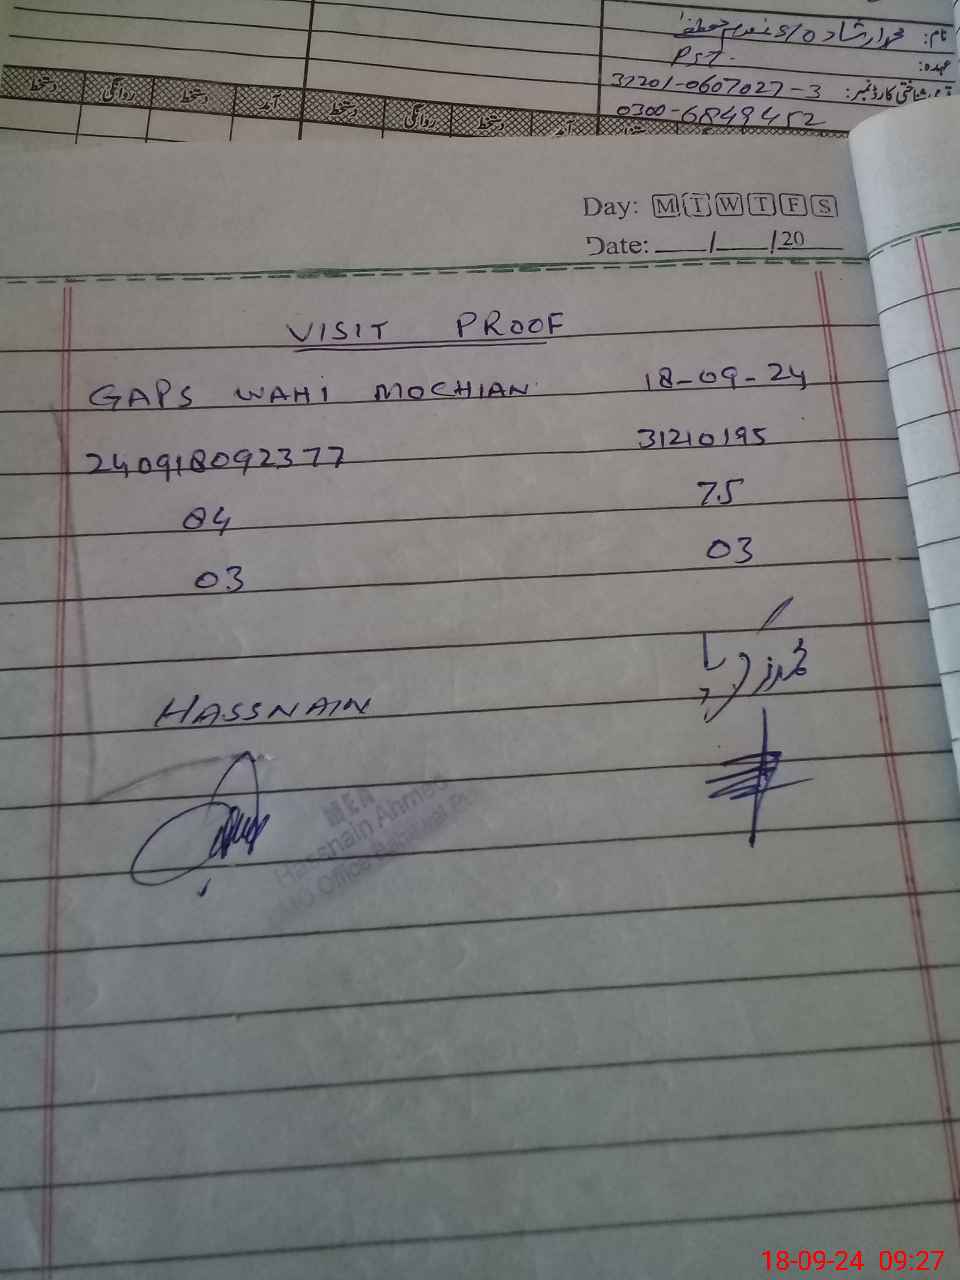 نام: محمد ارشاد S/O
عہدہ: PST.
شناختی کارڈ نمبر: 31201-0607027-3
0300-6849452
دستخط روانگی دستخط آمد دستخط روانگی دستخط آمد
Day: M T W T F S
Date: ___/___/20___
VISIT PROOF
GAPS WAHI MOCHIAN 18-09-24
240918092377 31210195
04 75
03 03
HASSNAIN
MEA
Hassnain Ahmed
Office
18-09-24 09:27